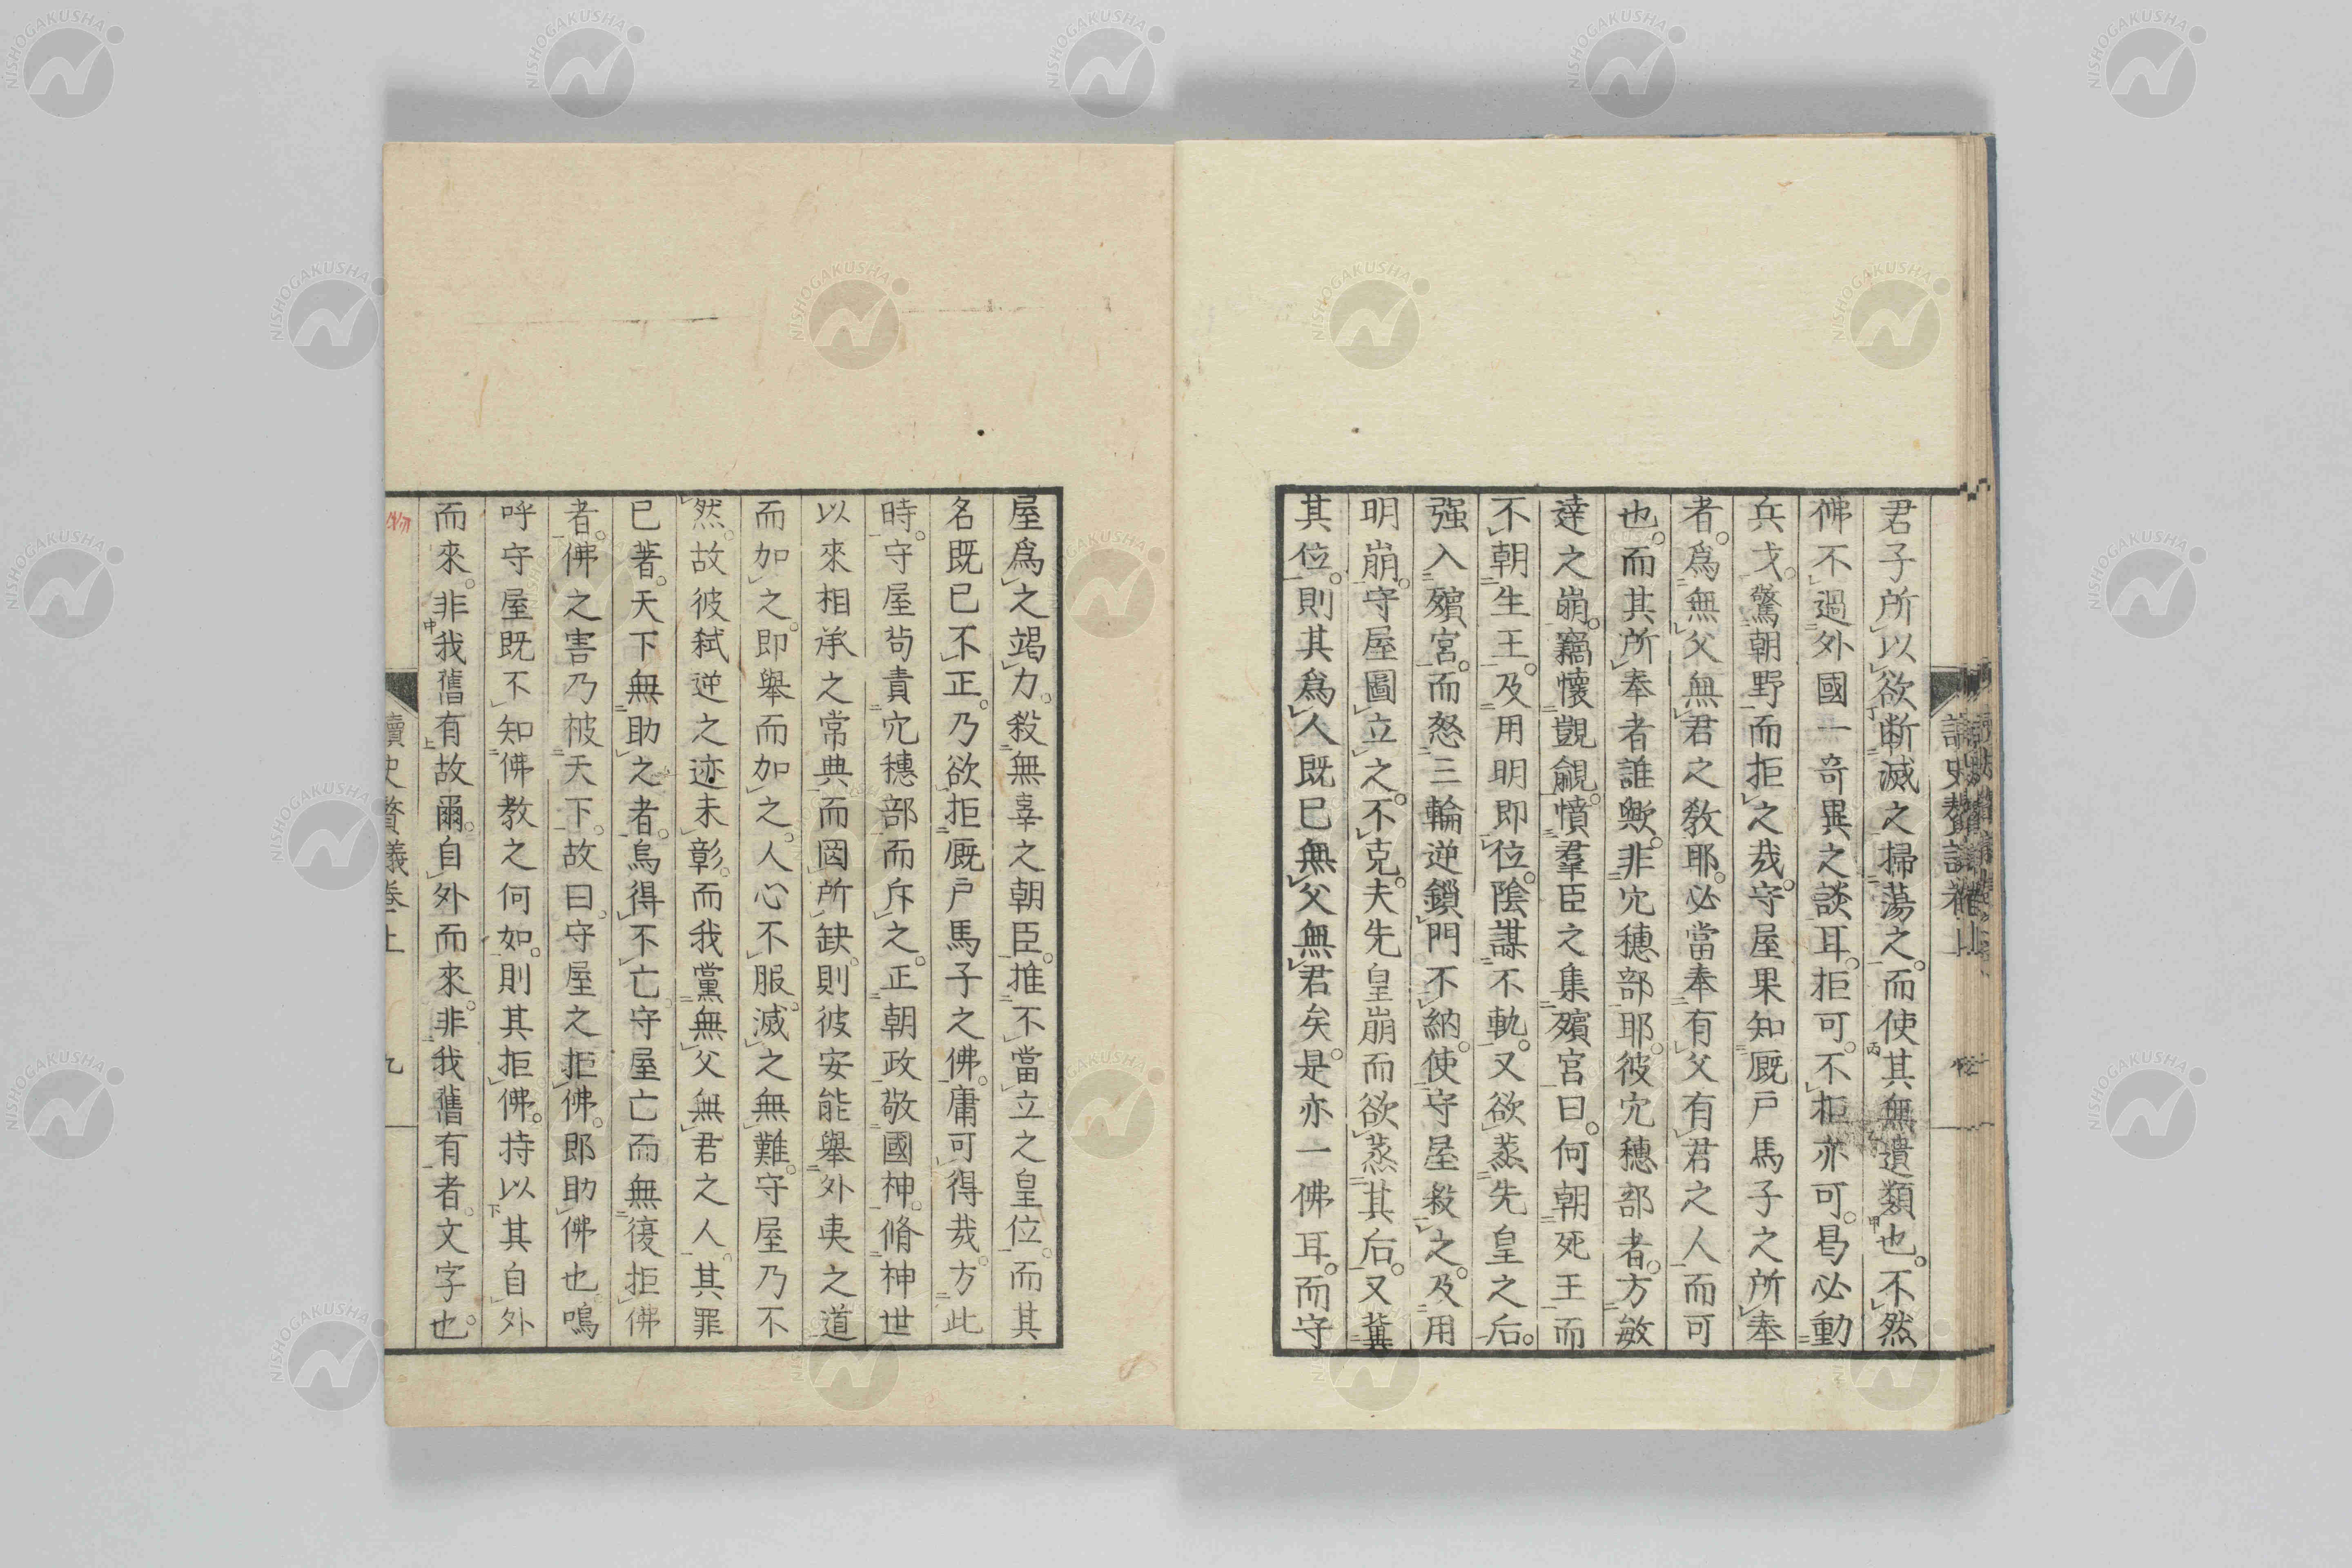 君子所以欲断滅之掃蕩之。而使其無遺類也。不然
佛不過外國一奇異之談耳。拒可。不拒亦可。曷必動
兵戈。驚朝野而拒之哉。守屋果知厩戸馬子之所奉
者。爲無父無君之教耶。必當奉有父有君之人而可
也。而其所奉者誰歟。非穴穗部耶。彼穴穗部者。方敏
達之崩。竊懷覬覦。憤羣臣之集殯宮曰。何朝死王而
不朝生王。及用明即位。陰謀不軌。又欲蒸先皇之后。
强入殯宮。而怒三輪逆鎖門不納。使守屋殺之。及用
明崩。守屋圖立之。不克。夫先皇崩而欲蒸其后。又冀
其位。則其爲人既已無父無君矣。是亦一佛耳。而守
屋爲之竭力。殺無辜之朝臣。推不當立之皇位。而其
名既已不正。乃欲拒厩戸馬子之佛。庸可得哉。方此
時。守屋苟責穴穗部而斥之。正朝政敬國神。脩神世
以來相承之常典而固所缺。則彼安能舉外夷之道
而加之。即舉而加之。人心不服。滅之無難。守屋乃不
然。故彼弑逆之迹未彰。而我黨無父無君之人。其罪
已著。天下無助之者。烏得不亡。守屋亡而無復拒佛
者。佛之害乃被天下。故曰。守屋之拒佛。即助佛也鳴
呼守屋既不知佛教之何如。則其拒佛。持以其自外
而來。非我舊有故爾。自外而來。非我舊有者。文字也。
讀史贅議卷上 九
NISHOGAKUSHA